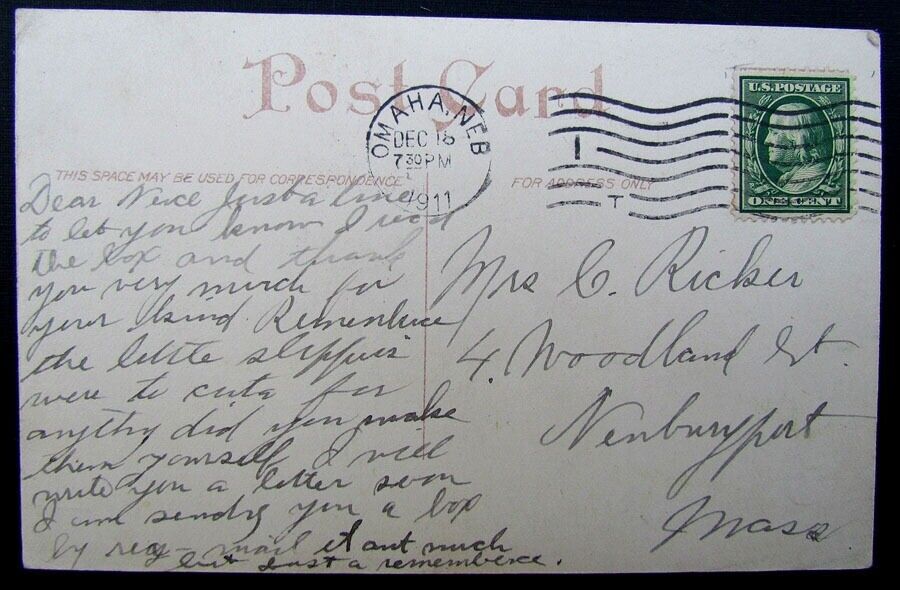 Post Card
OMAHA, NEB
DEC 18
7 30 PM
1911
U.S. POSTAGE
ONE CENT
THIS SPACE MAY BE USED FOR CORRESPONDENCE
FOR ADDRESS ONLY
Dear Neice Just a line
to let you know I rec'd
the box and thank
you very much for
your kind Rememberence
the little slippers
were to cute for
anything did you make
them yourself I will
write you a letter soon
I am sending you a box
by reg- mail it ant much
but just a rememberence.
Mrs C. Ricker
4. Woodland St
Newburyport
Mass